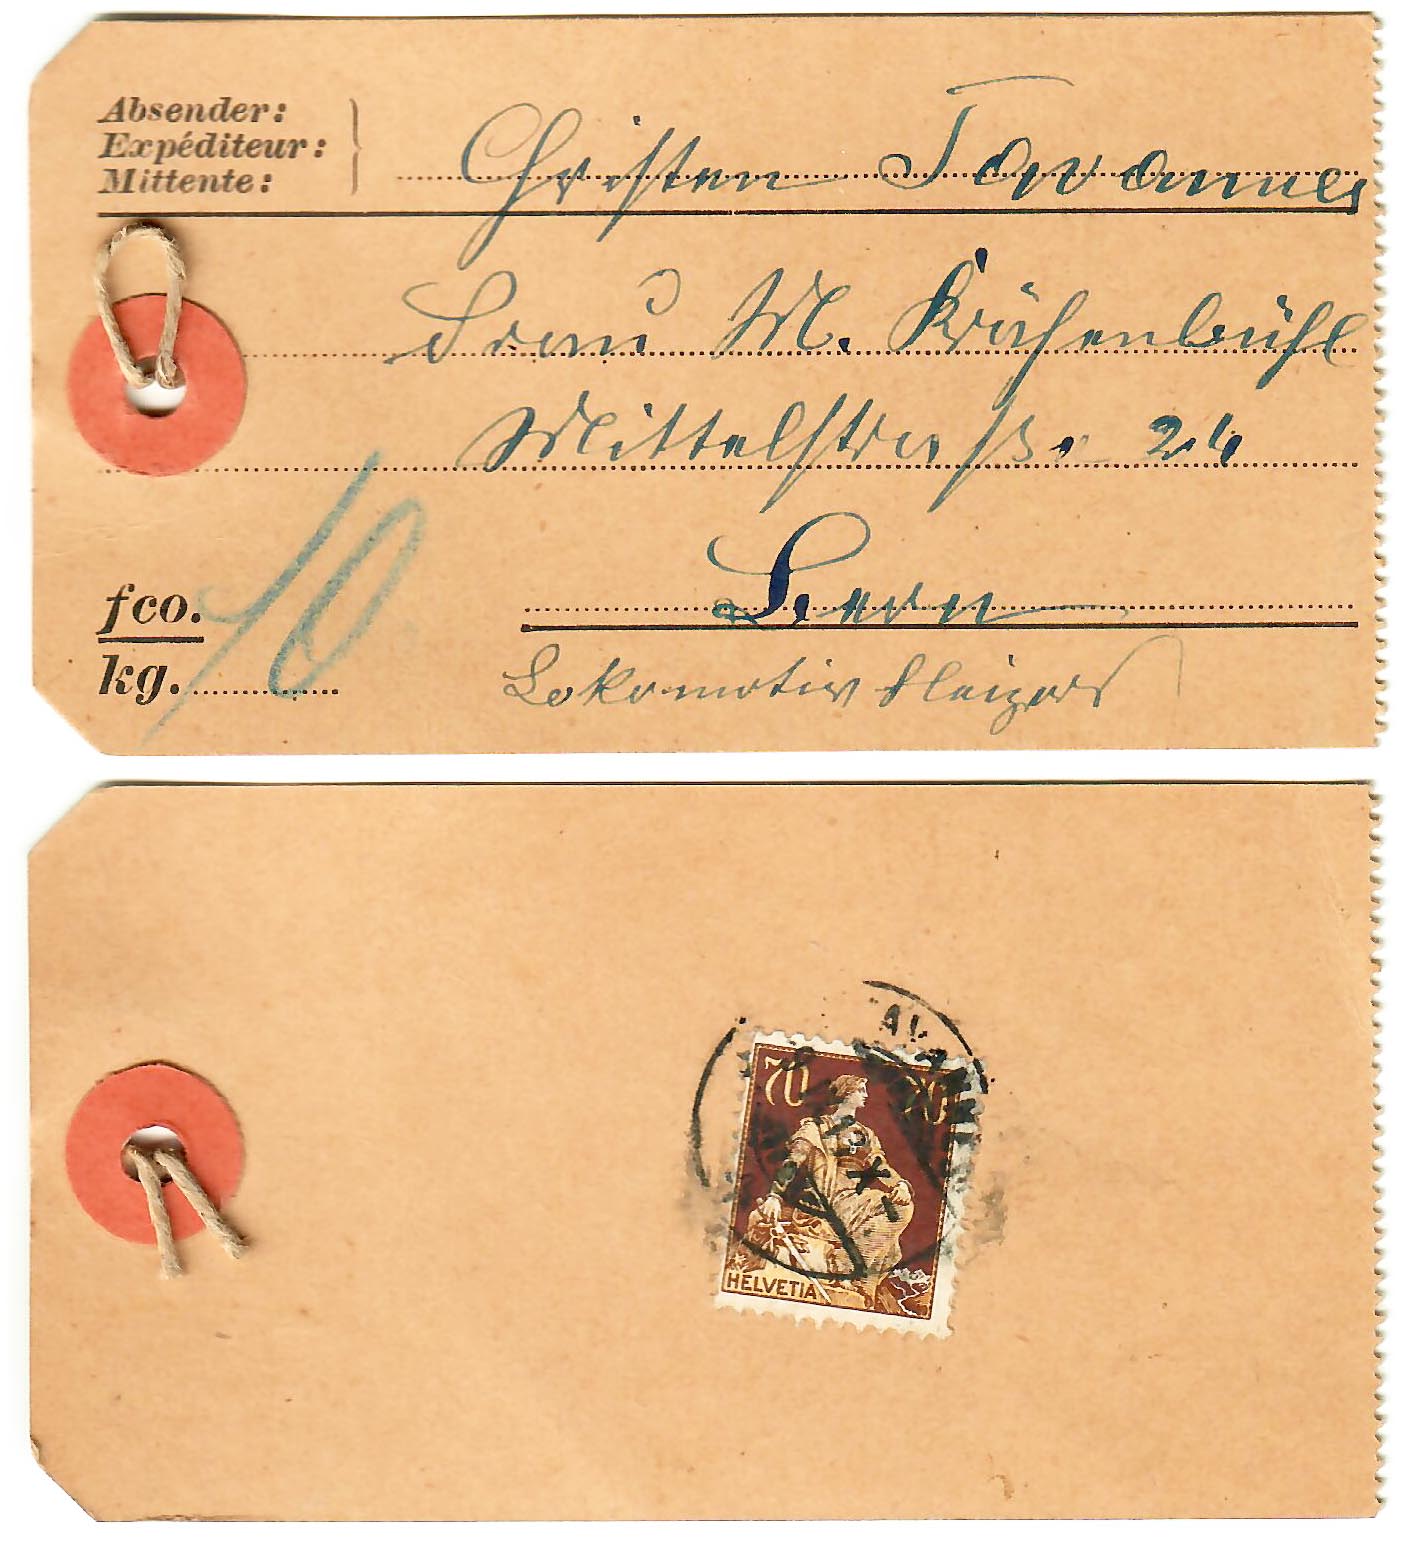 Absender:
Expéditeur:
Mittente:
Christen Tavannes
Frau M. Krähenbühl
Mittelstraße 24
Bern
fco.
kg. 10
Lokomotiv
70 70
HELVETIA